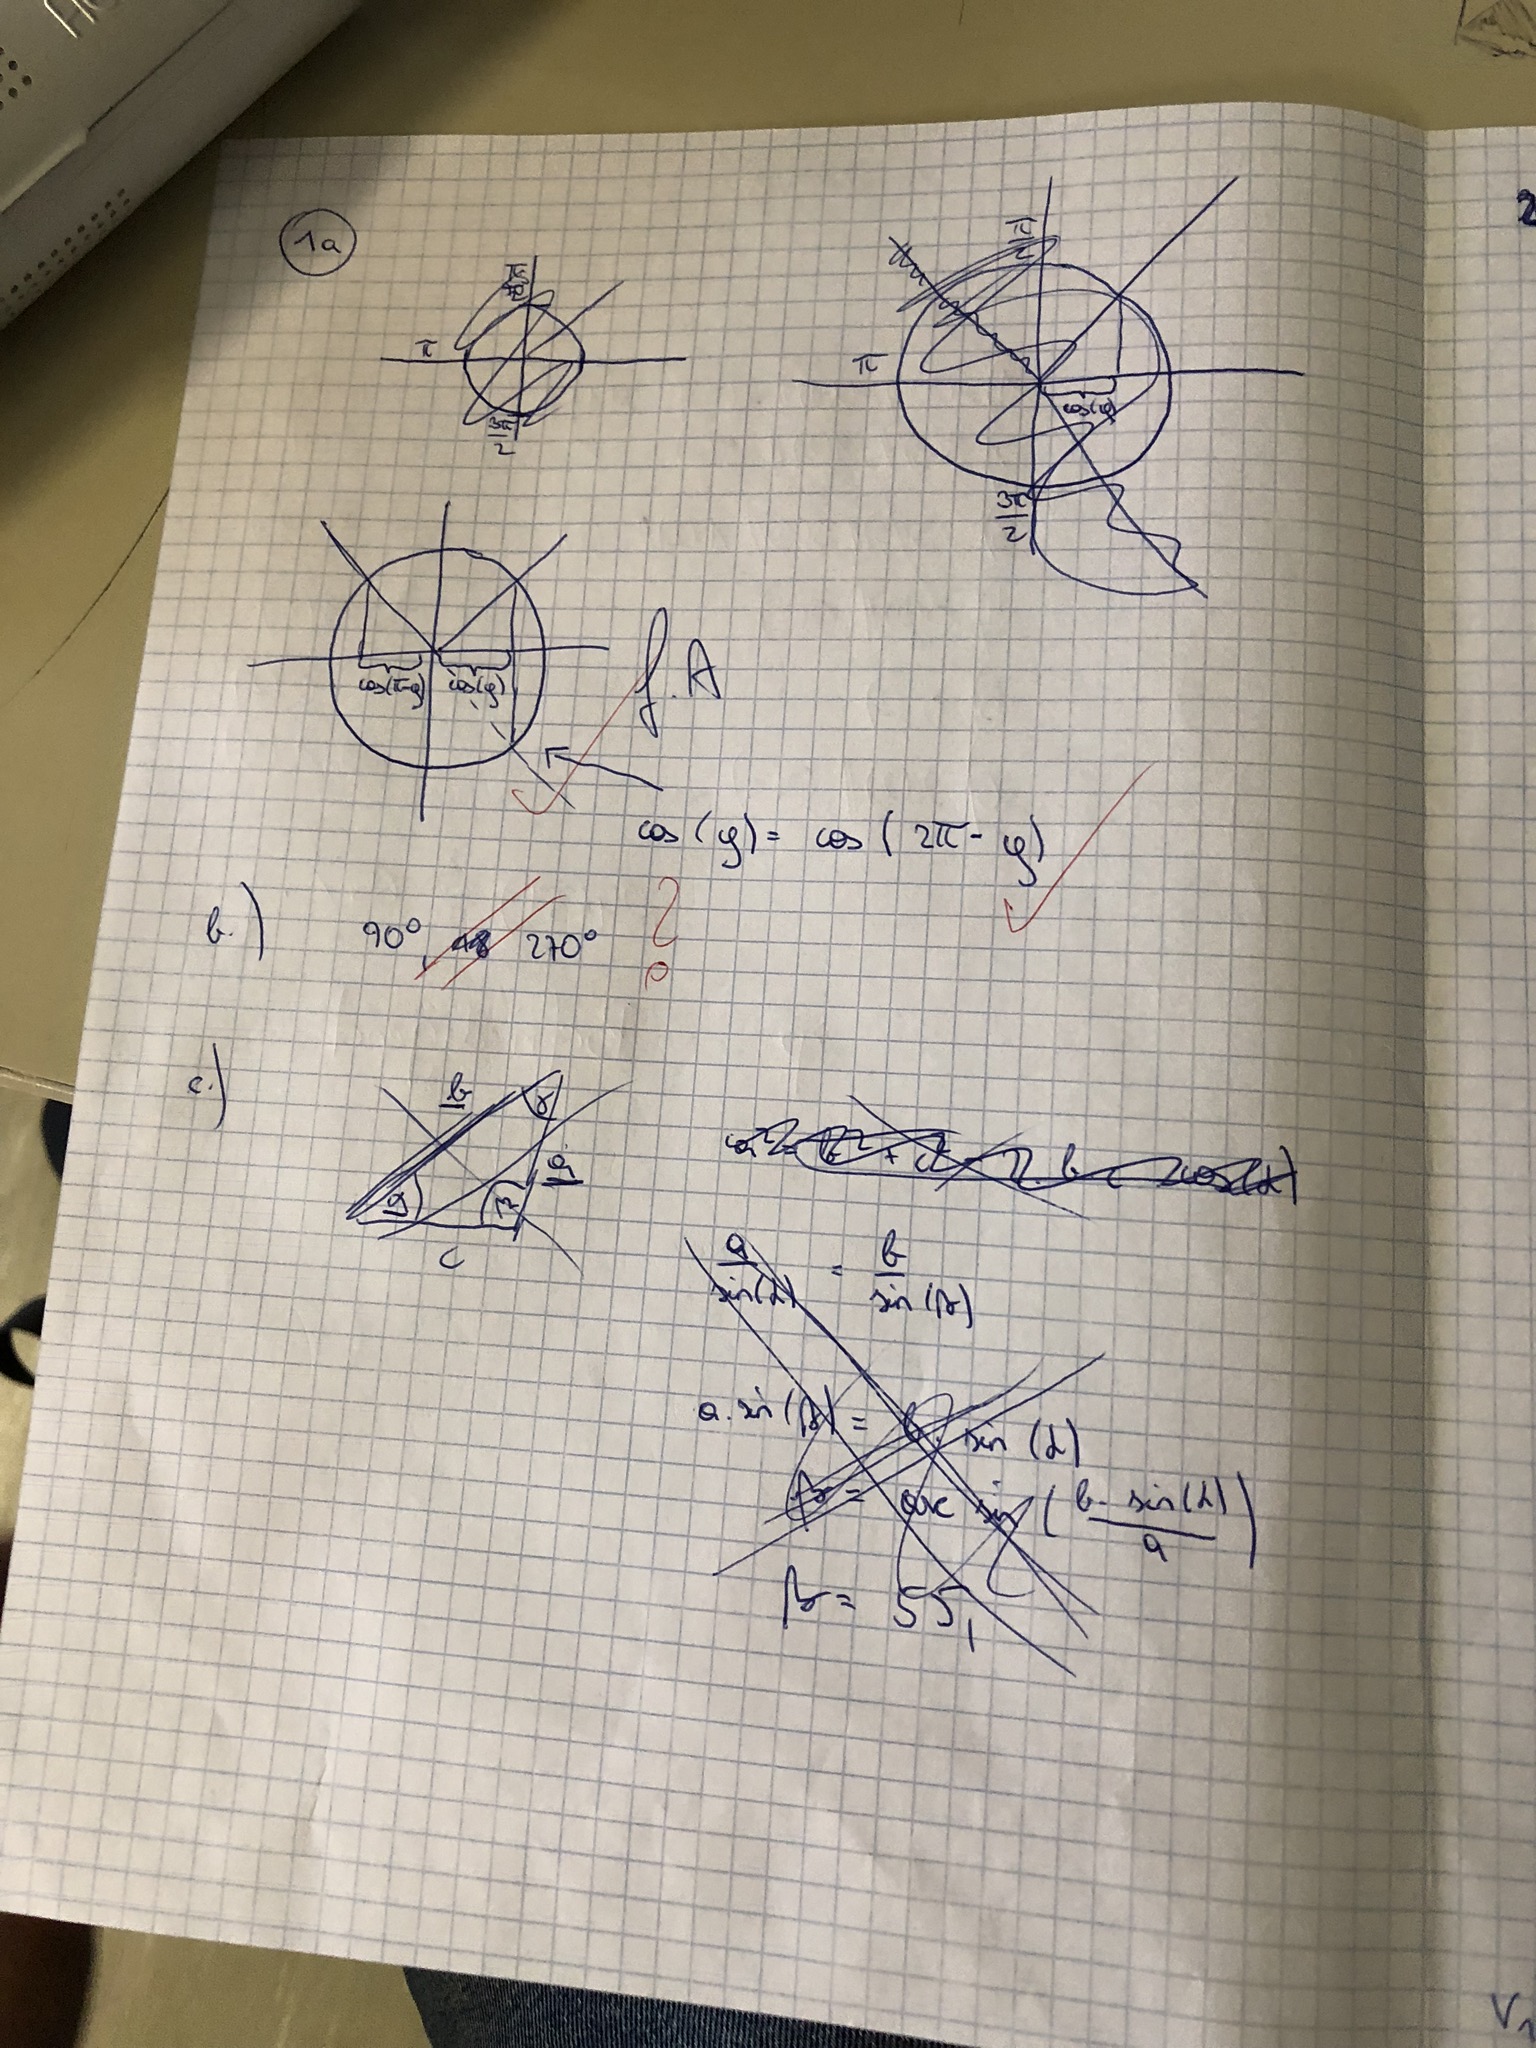 1a
π
3π/2
π/2
π
cos(φ)
3π/2
cos(π-φ) cos(φ)
f.A
cos(φ) = cos(2π-φ)
b.) 90°, 270° ?
c.)
b
γ
a
φ
β
c
a/sin(α) = b/sin(β)
a·sin(β) = b·sin(α)
β = arc sin(b·sin(α)/a)
β = 55,
2